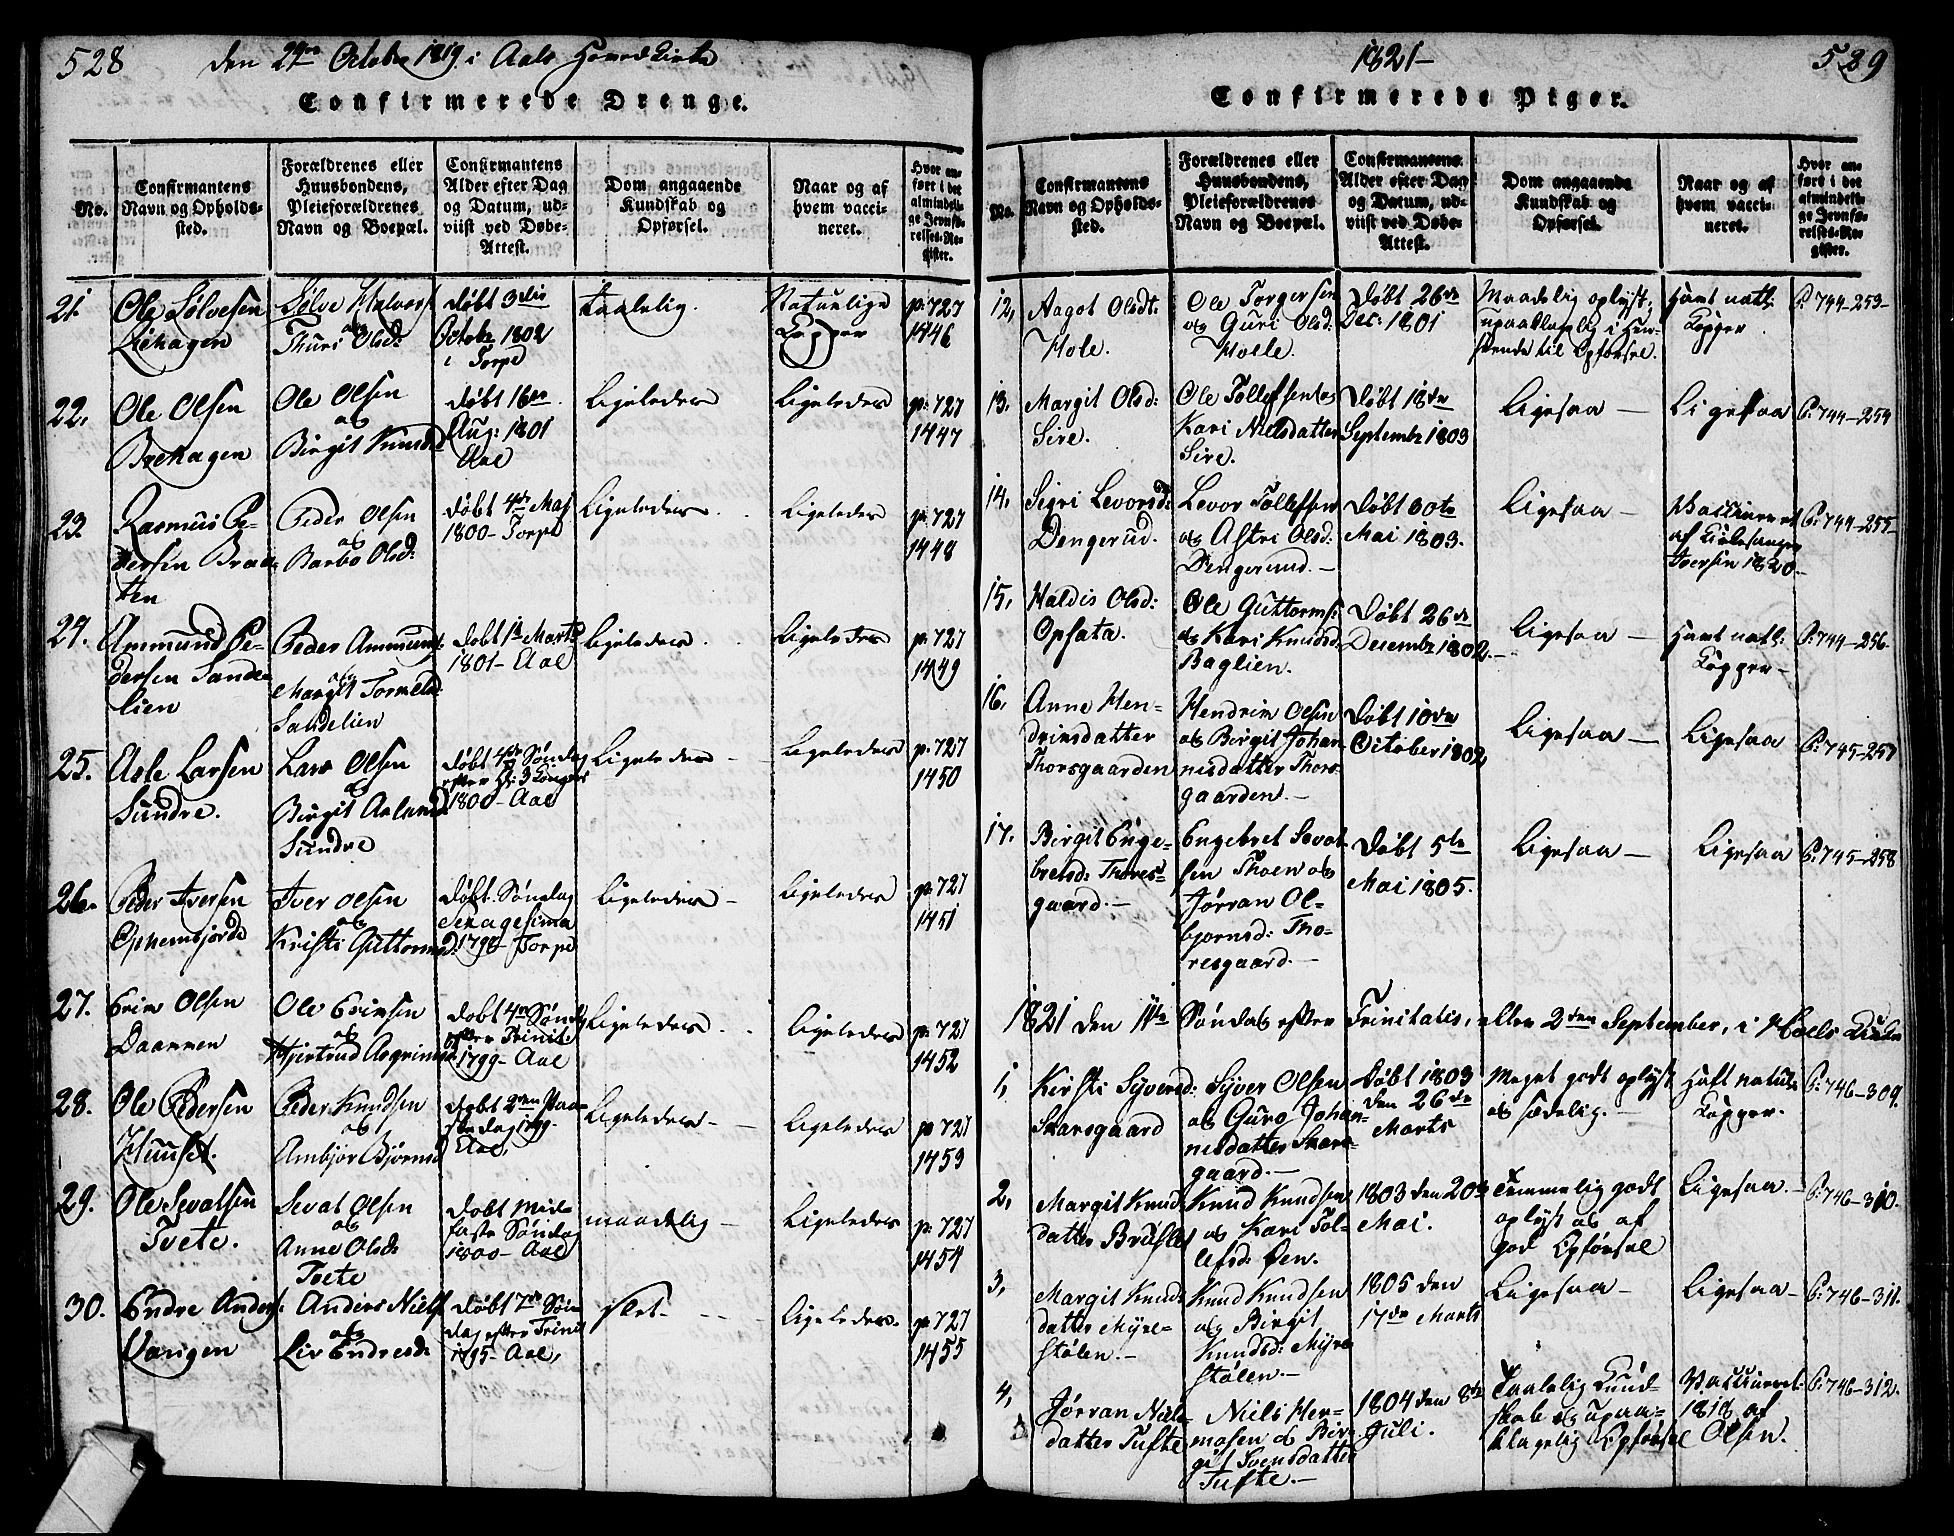 528 den 24de October 1819 i Aals Hovedkirke
Confirmerede Drenge.
No.
Confirmantens Navn og Opholdssted.
Forældrenes eller Huusbondens, Pleieforældrenes Navn og Boepæl.
Confirmantens Alder efter Dag og Datum, udviist ved Døbe-Attest.
Dom angaaende Kundskab og Opførsel.
Naar og af hvem vaccineret.
Hvor anført i det almindelige Jevnførelses-Register.
21. Ole Sølvesen Liehagen
Sølve Halvors: og Thuri Olsd:
døbt 3die Octobr 1802 i Torpe
taalelig.
Naturlige Kopper
p: 727 1446
22. Ole Olsen Brehagen
Ole Olsen og Birgit Knudsd
døbt 16de Aug: 1801 Aal
Ligeledes
Ligeledes
p: 727 1447
23 Rasmus Pedersen Braaten
Peder Olsen og Barbo Olsd:
døbt 4de Maj 1800 - Torpe
Ligeledes
Ligeledes
p: 727 1448
24. Ammund Pedersen Sandelien
Peder Ammunds: og Margit Sandelien
døbt 1te Marts 1801 - Aal
Ligeledes
Ligeledes
p: 727 1449
25. Asle Larsen Sundre.
Lars Olsen og Birgit Sundre
døbt 4de Søndag efter H: 3 Konger 1800 - Aal
Ligeledes -
Ligeledes
p: 727 1450
26. Peder Iversen
Iver Olsen og Kristi Guttormsd:
døbt Søndag Sexagesima 1798 - Torpe
Ligeledes -
Ligeledes
p: 727 1451
27. Erik Olsen
Ole Eriksen og Hjertrud
døbt 4de Sønd: efter Trinit: 1799 - Aal
Ligeledes
Ligeledes
p: 727 1452
28. Ole Pedersen Huuset.
Peder Knudsen og Ambjør Bjørnsd
døbt 2den Paaskedag 1799. Aal,
Ligeledes -
Ligeledes
p: 727 1453
29. Ole Sevatsen Tvete.
Sevat Olsen og Anne Olsd: Tvete
døbt Midfaste Søndag 1800 - Aal
maadelig -
Ligeledes
p: 727 1454
30. Endre Anders:
Anders Niels: og Liv Endresd:
døbt 7de Søndag efter Trinit 1795 - Aal,
slet -
Ligeledes.
p: 727 1455
1821 - 529
Confirmerede Piger.
No.
Confirmantens Navn og Opholdssted.
Forældrenes eller Huusbondens, Pleieforældrenes Navn og Boepæl.
Confirmantens Alder efter Dag og Datum, udviist ved Døbe-Attest.
Dom angaaende Kundskab og Opførsel.
Naar og af hvem vaccineret.
Hvor anført i det almindelige Jevnførelses-Register.
12, Aagot Olsdt: Hole.
Ole Torgersen og Guri Olsd: Holle.
Døbt 26de Dec: 1801
Maadelig oplyst, upaaklagelig i Henseende til Opførsel.
Havt natl: Kopper
P: 744-253-
13, Margit Olsd: Sire.
Ole Tollefsen og Kari Nielsdatter Sire.
Døbt 18de Septembr 1803
Ligesaa -
Ligesaa
P: 744-254
14, Sigri Levorsd: Dengerud.
Levor Tollefsen og Astri Olsd: Dengerud. -
Døbt 30te Mai 1803.
Ligesaa -
Vaccineret af Kirkesanger Iversen 1820 -
P: 744-255-
15, Haldis Olsd: Opsata.
Ole Guttorms: og Kari Knudsd: Baglien.
Døbt 26de Decembr 1802. -
Ligesaa -
Havt natl: Kopper -
P: 744-256
16, Anne Hendriksdatter Thorsgaarden
Hendrik Olsen og Birgit Johannisdatter Thorsgaarden. -
Døbt 10de October 1802,
Ligesaa -
Ligesaa
P: 745-257
17. Birgit Engebretsd: Thoresgaard. -
Engebret Sevatsen Thoen og Jørran Olbjørnsd: Thoresgaard. -
Døbt 5te Mai 1805.
Ligesaa -
Ligesaa
P: 745-258
1821 den 11te Søndag efter Trinitatis, eller 2den September, i Hoels Kirke
1, Kirsti Syversd: Skarsgaard
Syver Olsen og Guro Johannisdatter Skarsgaard. -
Døbt 1803 den 26de Marts
Meget godt oplyst og sædelig. -
Haft naturl: Kopper.
P: 746-309.
2, Margit Knudsdatter
Knud Knudsen og Kari Tollefsd: Øen.
1803 den 20de Mai.
Temmelig godt oplyst og af god Opførsel
Ligesaa. -
P: 746-310.
3, Margit Knudsdatter Myrestølen. -
Knud Knudsen og Birgit Knudsd: Myrestølen. -
1805 den 17de Marts
Ligesaa -
Ligesaa -
P: 746-311.
4, Jørran Nielsdatter Tufte
Niels Hermosen og Birgit Svensdatter Tufte. -
1804 den 8de Juli.
Taalelig Kundskab og upaaklagelig Opførsel
Vaccineret 1818 af Olsen.
P: 746-312.